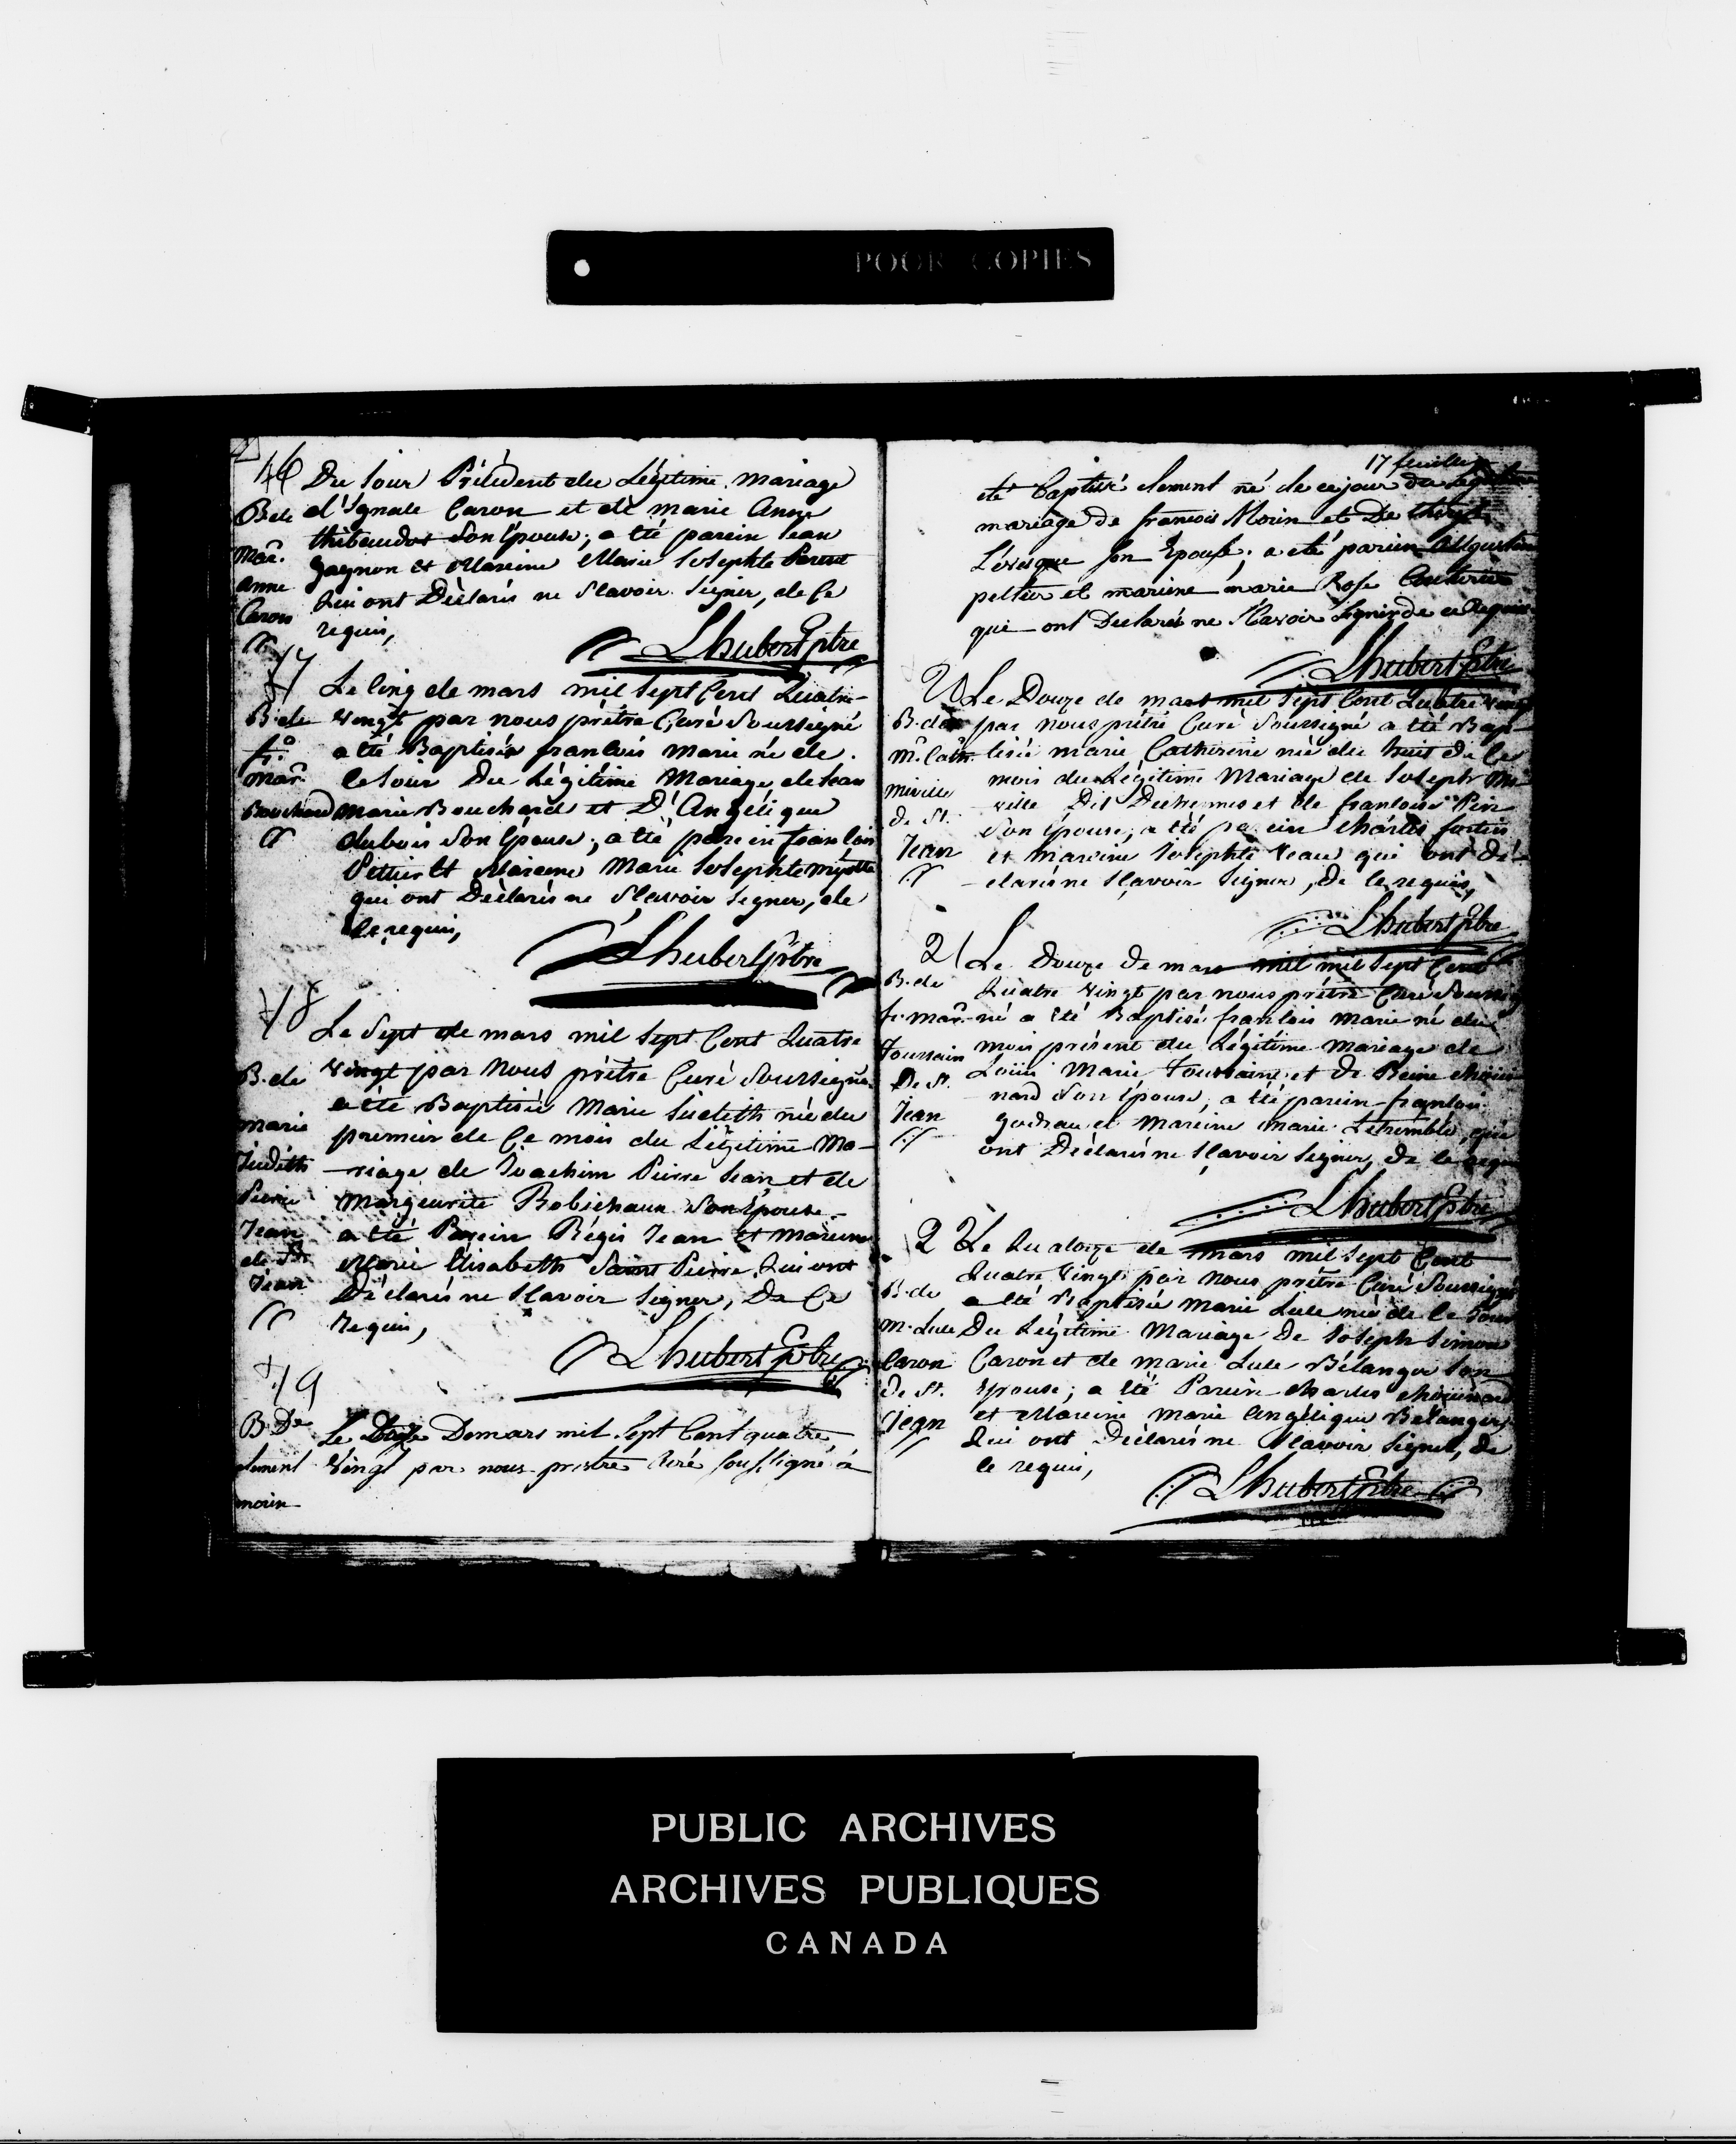 POOR COPIES
16
Du Jour Précédent du Légitime mariage
B de
d'Ignace Caron et de marie Anne
thibaudos Son Epouse; a été parein Jean
mar.
gagnon et Mareine Marie Josephte Parent
anne
Qui ont Déclarés ne Scavoir Signer, de Ce
Caron
requis,
LhubertEptre
17
Le Cinq de mars mil Sept Cent Quatre-
B. de
vingt par nous prêtre Curé Soussigné
f.
a été Baptisée francois marie né de
mar.
ce Jour Du Légitime Mariage de Jean
Bouchard
marie Bouchard et D'Angélique
dubois Son Epouse; a été parein francois
Pettier et Mareine Marie Josephte
qui ont Déclarés ne Scavoir Signer, de
Ce requis,
LhubertPtre
18
Le Sept de mars mil Sept Cent Quatre
B. de
vingt par Nous prêtre Curé Soussigné
a été Baptisée Marie Judith née du
marie
premier de Ce mois du Légitime Ma-
Judith
-riage de Joachim Pierre Jean et de
Pierre
Marguerite Robichaux Son Epouse-
Jean
a été Parein Régis Jean et Mareine
de St.
Marie Elisabeth Saint Pierre Qui ont
Jean
Déclarés ne Scavoir Signer, De Ce
Requis,
LhubertEptre
19
B De
Le Douze De mars mil Sept Cent quatre
clement
Vingt par nous prestre Curé Soussigné à
morin
17 feuillet
eté baptisé clement né de ce jour du Legitime
mariage de francois Morin et De
Lévesque Son Epouse; a eté parien Augustin
peltier et marine marie Rose
qui ont Declaré ne Scavoir Signer de ce Requis
LhubertEptre
Le Douze de mars mil Sept Cent Quatre Vingt
B. de
par nous prêtre Curé Soussigné a été Bap-
m. Cath.
tisée marie Catherine née du huit de Ce
miville
mois du Légitime Mariage de Joseph Mi-
de St.
-ville Dit Dechennes et de francoise Pin
Jean
Son Epouse; a été parein Charles fortin
et mareine Josephte veau qui ont Dé-
-clarés ne Scavoir Signer, De Ce requis,
LhubertPtre
21
Le Douze de mars mil mil Sept Cent
B. de
Quatre vingt par nous prêtre Curé Soussig
f. mar.
-né a été Baptisé francois marie né du
Toussain
mois présent du Légitime mariage de
De St.
Louis Marie Toussaint et de Reine Chouin
Jean
nard Son Epouse, a été parein francois
godreau et Mareine Marie Letremble, qui
ont Déclarés ne Scavoir Signer, De Ce requi
LhubertEptre
22
Le Quatorze de mars mil Sept Cent
B. de
Quatre Vingt par Nous prêtre Curé Soussigné
a été Baptisée Marie Luce née de Ce Jour
m. Luce
Du Légitime Mariage De Joseph Simon
Caron
Caron et de marie Luce Bélanger Son
de St.
Epouse; a été Parein Charles Chouinard
Jean
et Mareine Marie Angélique Bélanger
Qui ont Déclarés ne Scavoir Signer, de
Ce requis,
LhubertEptre
PUBLIC ARCHIVES
ARCHIVES PUBLIQUES
CANADA